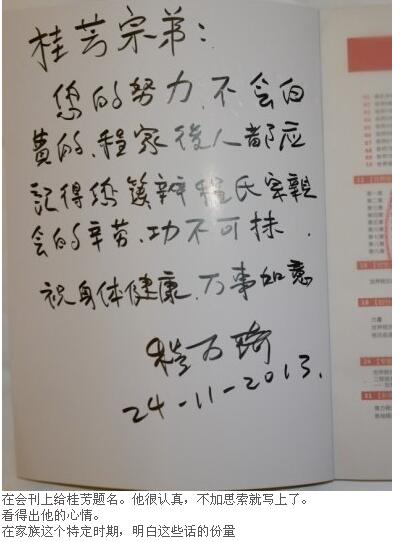 桂芳宗弟:
您的努力,不会白
費的、程家後人都应
記得您籌辦程氏宗親
会的辛劳、功不可抹.
祝身体健康.万事如意
程万琦
24-11-2013.
在会刊上给桂芳题名。他很认真，不加思索就写上了。
看得出他的心情。
在家族这个特定时期，明白这些话的份量